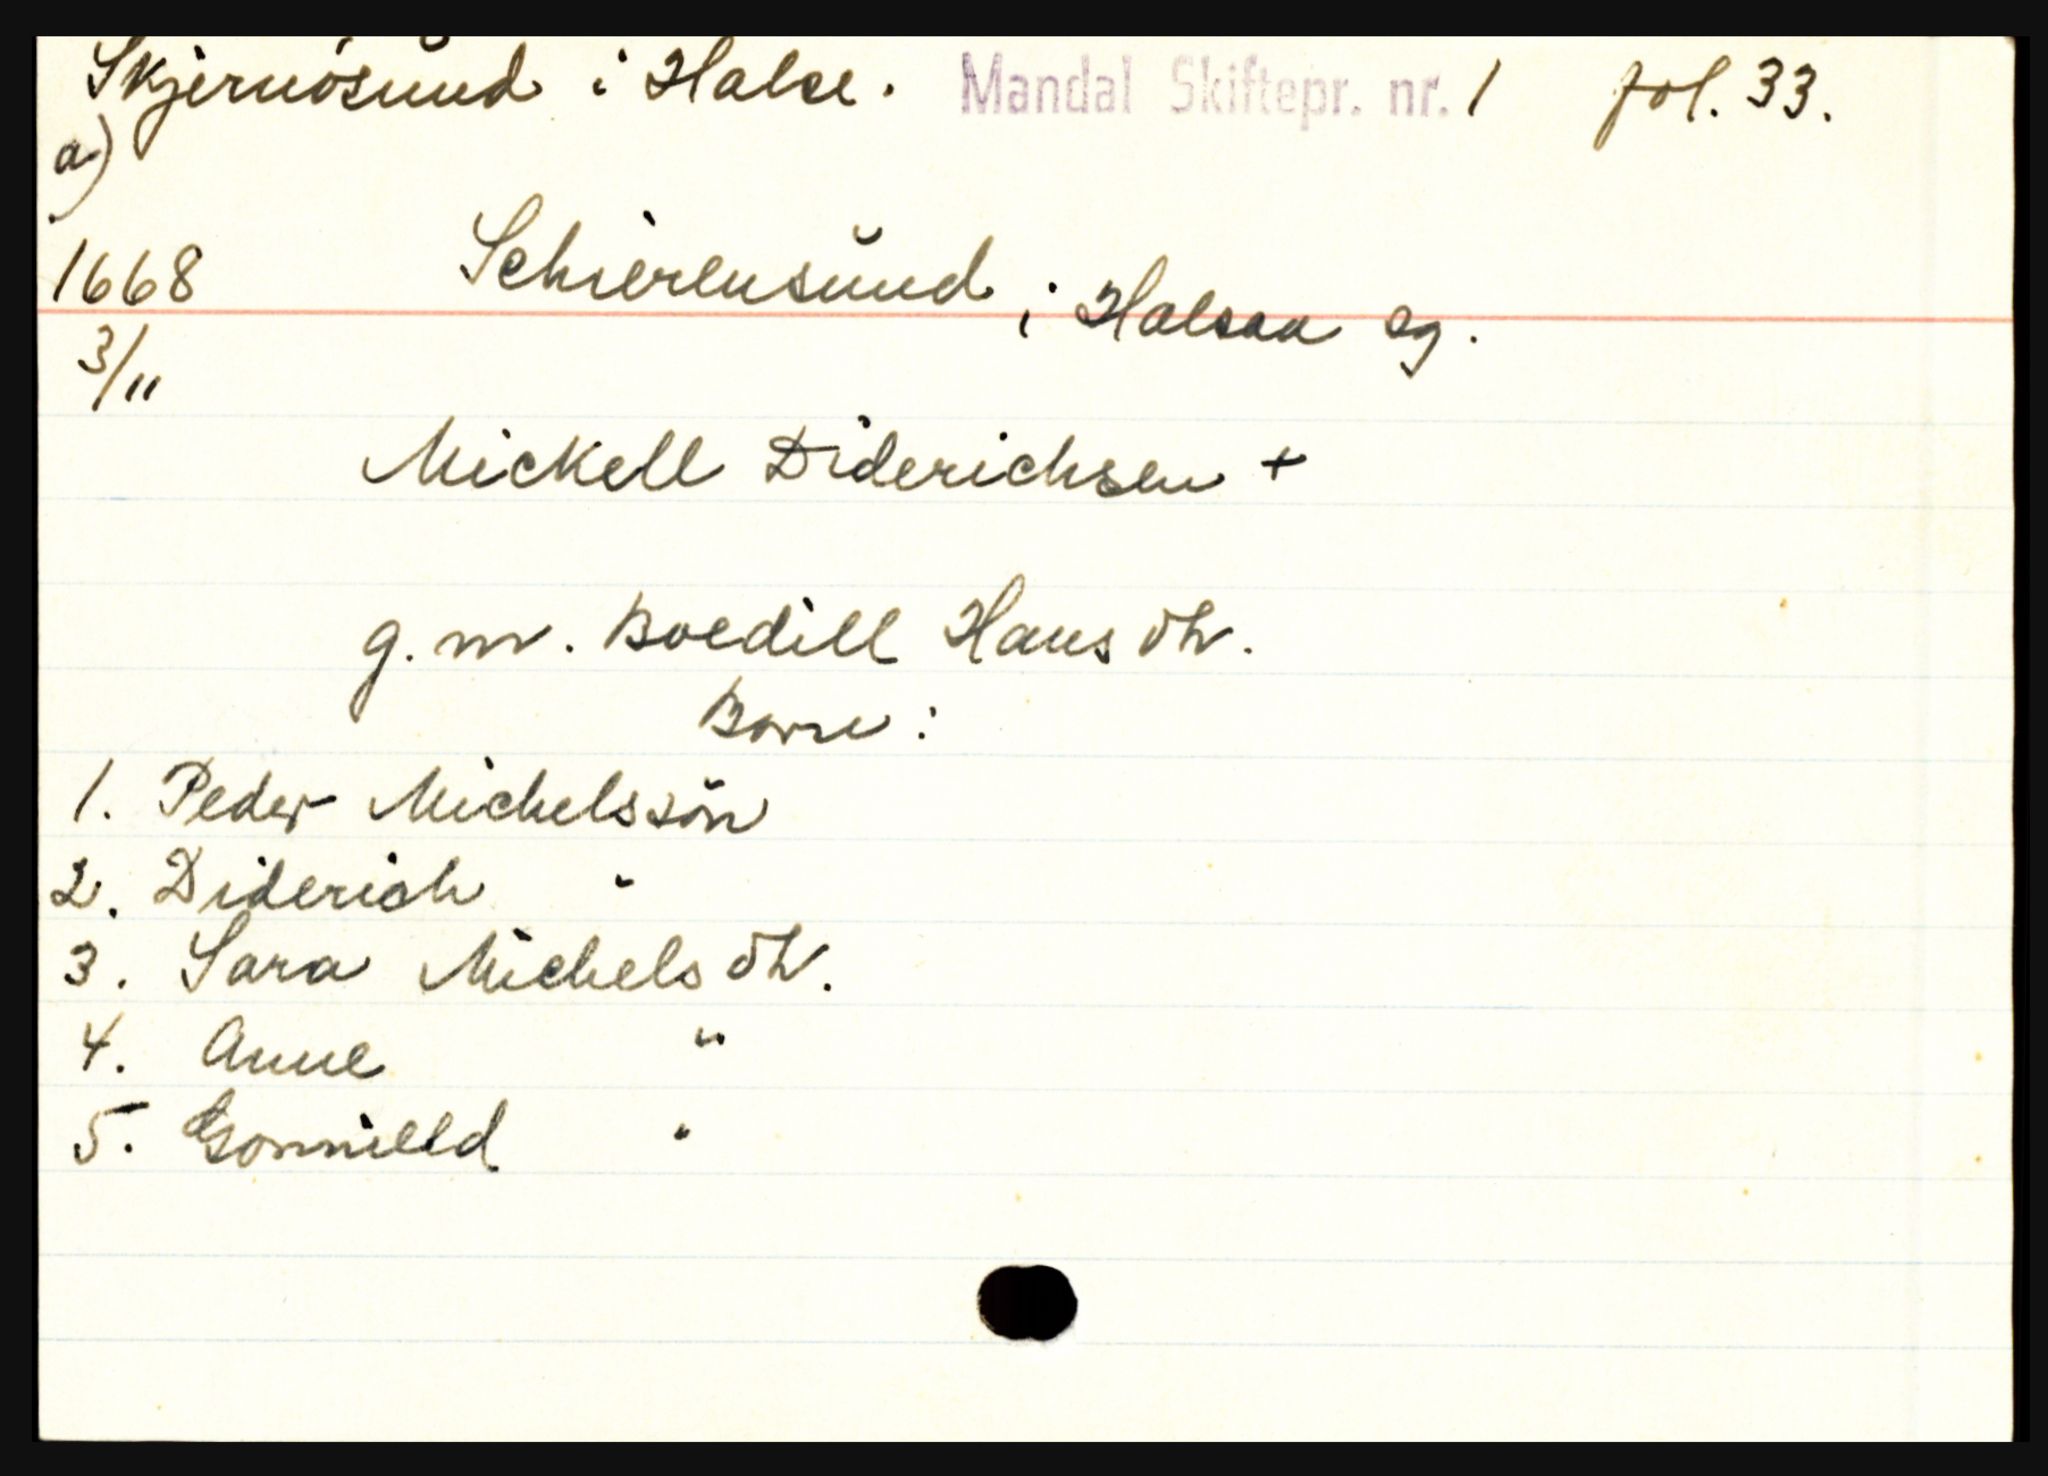 Skjernösund i Halse. Mandal Skiftepr. nr. 1 fol. 33.
a)
1668 Schierensund i Halsaa sg.
3/11
Mickell Diderichsen +
g. m. Boedill Hans dtr.
Born :
1. Peder Michelssön
2. Diderich "
3. Sara Michels dtr.
4. Anne "
5. Gonnield "